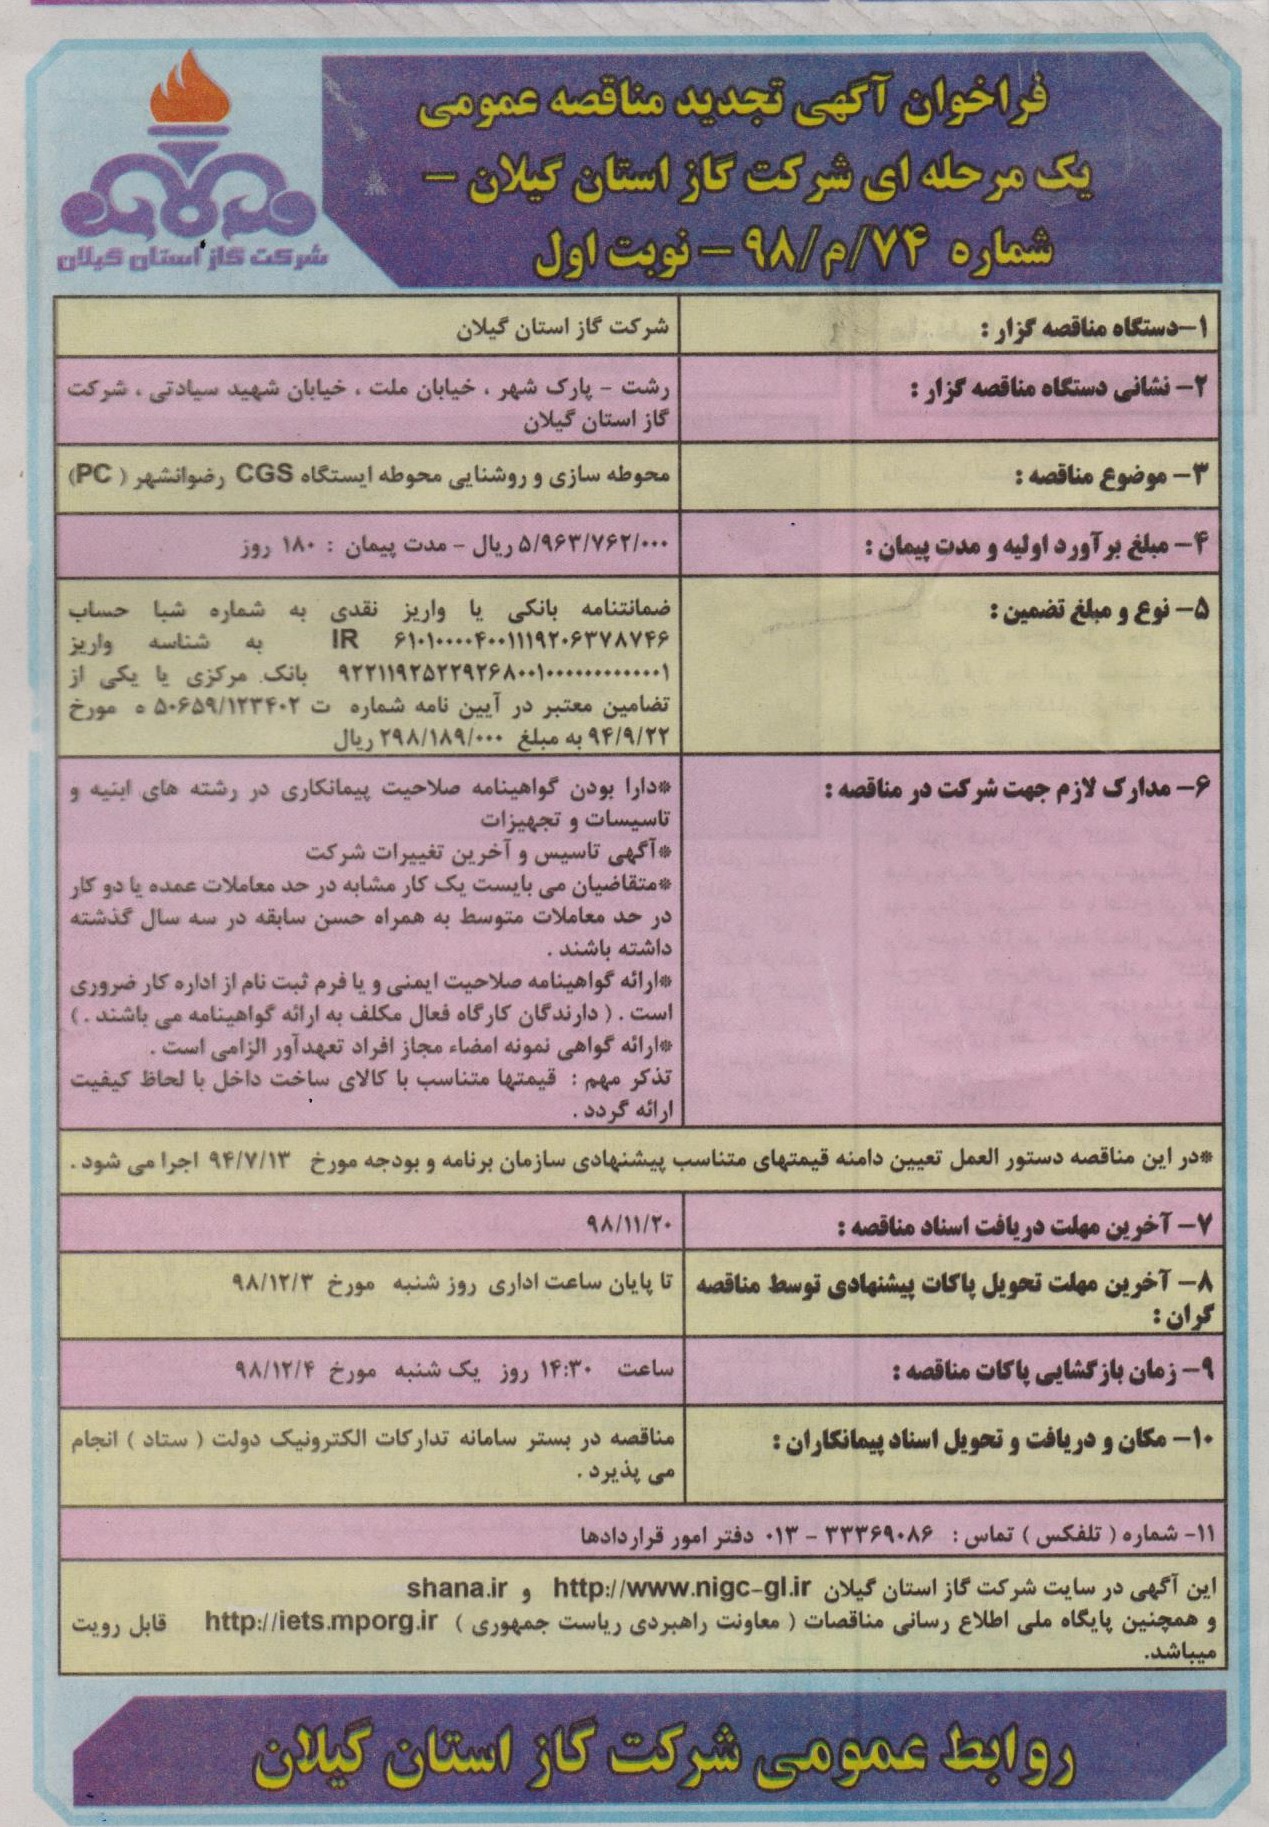 فراخوان آگهی تجدید مناقصه عمومی
یک مرحله ای شرکت گاز استان گیلان –
شماره ۷۴/م/۹۸ – نوبت اول
شرکت گاز استان گیلان
۱-دستگاه مناقصه گزار :
شرکت گاز استان گیلان
۲- نشانی دستگاه مناقصه گزار :
رشت - پارک شهر ، خیابان ملت ، خیابان شهید سیادتی ، شرکت
گاز استان گیلان
۳- موضوع مناقصه :
محوطه سازی و روشنایی محوطه ایستگاه CGS رضوانشهر ( PC)
۴- مبلغ برآورد اولیه و مدت پیمان :
۵/۹۶۳/۷۶۲/۰۰۰ ریال - مدت پیمان : ۱۸۰ روز
۵- نوع و مبلغ تضمین :
ضمانتنامه بانکی یا واریز نقدی به شماره شبا حساب
IR ۶۱۰۱۰۰۰۰۴۰۰۱۱۱۹۲۰۶۳۷۸۷۴۶ به شناسه واریز
۹۲۲۱۱۹۲۵۲۲۹۲۶۸۰۰۱۰۰۰۰۰۰۰۰۰۰۰۰۱ بانک مرکزی یا یکی از
تضامین معتبر در آیین نامه شماره ت ۵۰۶۵۹/۱۲۳۴۰۲ ه مورخ
۹۴/۹/۲۲ به مبلغ ۲۹۸/۱۸۹/۰۰۰ ریال
۶- مدارک لازم جهت شرکت در مناقصه :
*دارا بودن گواهینامه صلاحیت پیمانکاری در رشته های ابنیه و
تاسیسات و تجهیزات
*آگهی تاسیس و آخرین تغییرات شرکت
*متقاضیان می بایست یک کار مشابه در حد معاملات عمده یا دو کار
در حد معاملات متوسط به همراه حسن سابقه در سه سال گذشته
داشته باشند .
*ارائه گواهینامه صلاحیت ایمنی و یا فرم ثبت نام از اداره کار ضروری
است . ( دارندگان کارگاه فعال مکلف به ارائه گواهینامه می باشند . )
*ارائه گواهی نمونه امضاء مجاز افراد تعهدآور الزامی است .
تذکر مهم : قیمتها متناسب با کالای ساخت داخل با لحاظ کیفیت
ارائه گردد .
*در این مناقصه دستور العمل تعیین دامنه قیمتهای متناسب پیشنهادی سازمان برنامه و بودجه مورخ ۹۴/۷/۱۳ اجرا می شود .
۷- آخرین مهلت دریافت اسناد مناقصه :
۹۸/۱۱/۲۰
۸- آخرین مهلت تحویل پاکات پیشنهادی توسط مناقصه
گران :
تا پایان ساعت اداری روز شنبه مورخ ۹۸/۱۲/۳
۹- زمان بازگشایی پاکات مناقصه :
ساعت ۱۴:۳۰ روز یک شنبه مورخ ۹۸/۱۲/۴
۱۰- مکان و دریافت و تحویل اسناد پیمانکاران :
مناقصه در بستر سامانه تدارکات الکترونیک دولت ( ستاد ) انجام
می پذیرد .
۱۱- شماره ( تلفکس ) تماس : ۳۳۳۶۹۰۸۶ - ۰۱۳ دفتر امور قراردادها
این آگهی در سایت شرکت گاز استان گیلان http://www.nigc-gl.ir و shana.ir
و همچنین پایگاه ملی اطلاع رسانی مناقصات ( معاونت راهبردی ریاست جمهوری ) http://iets.mporg.ir قابل رویت
میباشد.
روابط عمومی شرکت گاز استان گیلان